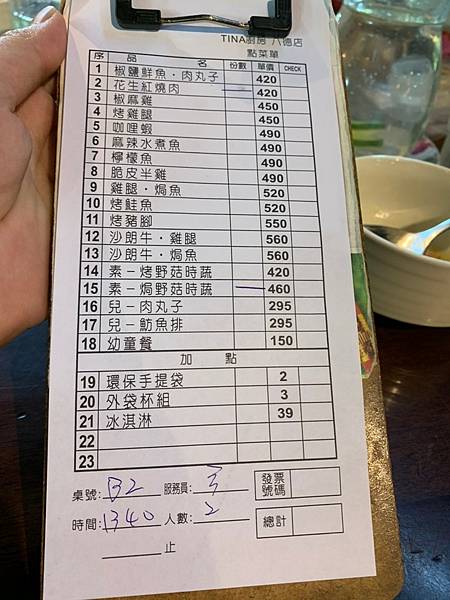 TINA廚房 八德店
點菜單
序 品名 份數 單價 CHECK
1 椒鹽鮮魚·肉丸子 420
2 花生紅燒肉 一 420
3 椒麻雞 450
4 烤雞腿 450
5 咖哩蝦 490
6 麻辣水煮魚 490
7 檸檬魚 490
8 脆皮半雞 490
9 雞腿·焗魚 520
10 烤鮭魚 520
11 烤豬腳 550
12 沙朗牛·雞腿 560
13 沙朗牛·焗魚 560
14 素－烤野菇時蔬 420
15 素－焗野菇時蔬 一 460
16 兒－肉丸子 295
17 兒－魴魚排 295
18 幼童餐 150
加點
19 環保手提袋 2
20 外袋杯組 3
21 冰淇淋 39
22
23
桌號: B2 服務員: 発票號碼
時間: 1340 人數: 2 總計
止